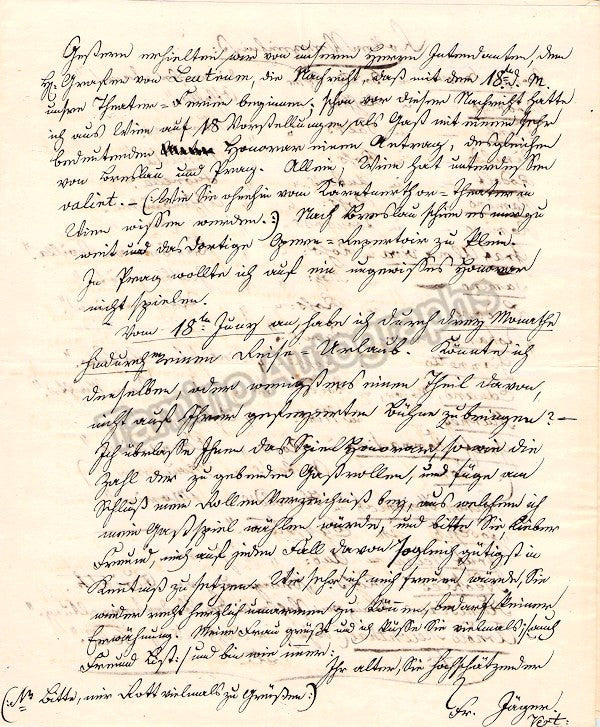 Gestern erhielten wir von unserem Herrn Intendanten, dem
H: Grafen von Leutrum, die Nachricht, daß mit dem 18ten d. M.
unsre Theater-Ferien beginnen; schon vor dieser Nachricht hatte
ich aus Wien auf 18 Vorstellungen als Gast mit einem sehr
bedeutenden Honorar einen Antrag, desgleichen
von Breslau und Prag. Allein, Wien hat unterdessen
. – (: Wie Sie ohnehin vom Kärntnerthor-Theater in
Wien wissen werden. :) Nach Breslau schien es mir zu
weit und das dortige Opern-Repertoir zu klein.
In Prag wollte ich auf ein ungewisses Honorar
nicht spielen.
Vom 18ten Juny an, habe ich durch drey Monathe
hindurch einen Reise-Urlaub. Könnte ich
denselben, oder wenigstens einen Theil davon,
nicht auf Ihrer gefeyerten Bühne zubringen? –
Ich überlasse Ihnen das Spiel Honorar so wie die
Zahl der zu gebenden Gastrollen, und füge am
Schluß mein Rollen Verzeichniß bey, aus welchem ich
mein Gastspiel wählen würde, und bitte Sie, lieber
Freund, mich auf jeden Fall davon sogleich gütigst in
Kenntniß zu setzen. Wie sehr ich mich freuen würde, Sie
wieder recht herzlich umarmen zu können, bedarf keiner
Erwähnung. Meine Frau grüßt und ich küsse Sie vielmals /: auch
Freund :/ und bin wie immer:
Ihr alter, Sie hochschätzender
Fr. Jäger.
(: NB Bitte, mir Rott vielmals zu grüßen. :)
Vert:
Tamino Autographs